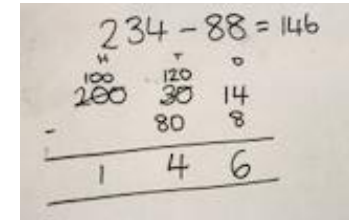 234 - 88 = 146
H T O
100 120
200 30 14
- 80 8
1 4 6